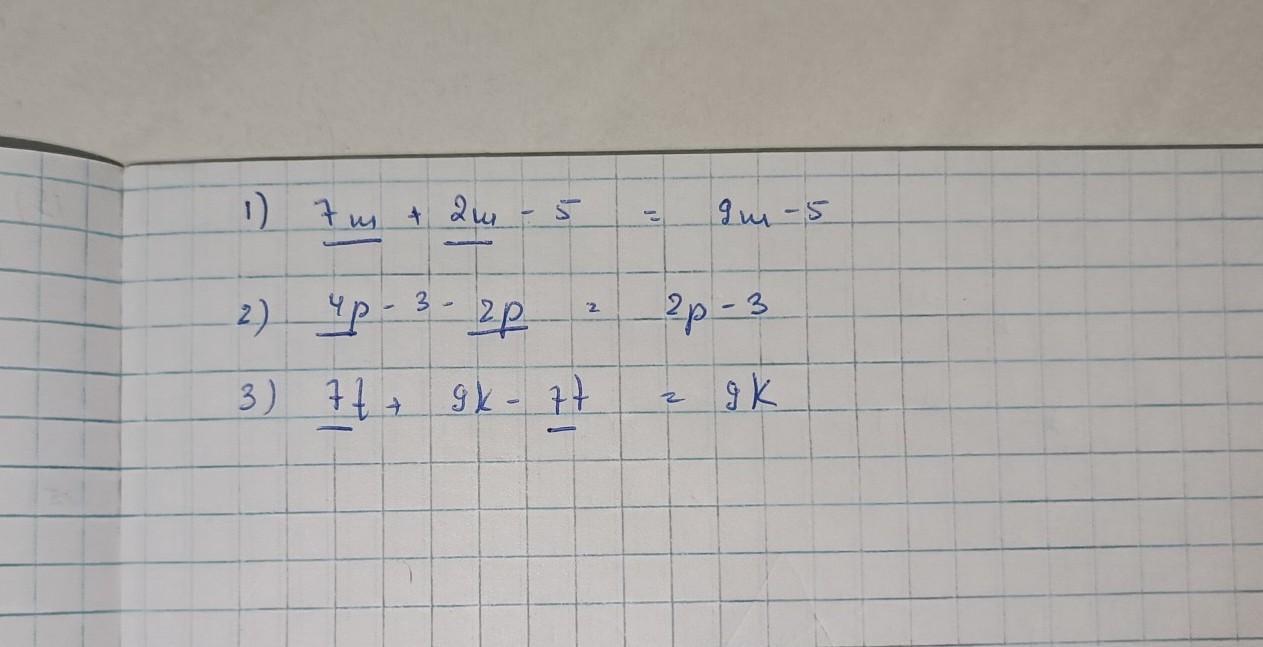 1) 7m + 2m - 5 = 9m - 5
2) 4p - 3 - 2p = 2p - 3
3) 7t + 9k - 7t = 9k